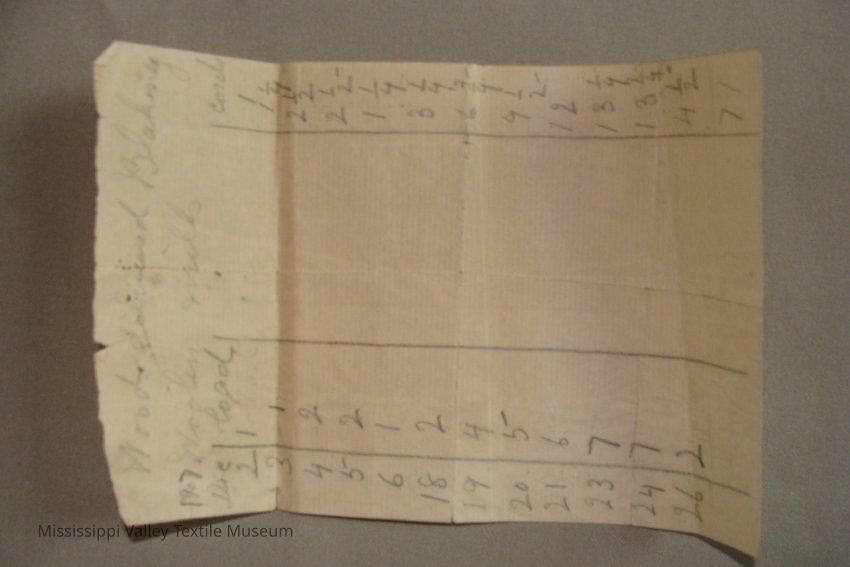 Wood and Blakney
Woolen mills
1907
Dec loads cords
2 1 1
3 1 1 1/4
4 2 2 1/2
5 2 2 1/2
6 1 1 1/4
18 2 3 1/4
19 4 6 3/4
20 5 9 1/2
21 6 12
23 7 13 1/4
24 7 13 1/4
26 2 4 1/2
71
Mississippi Valley Textile Museum